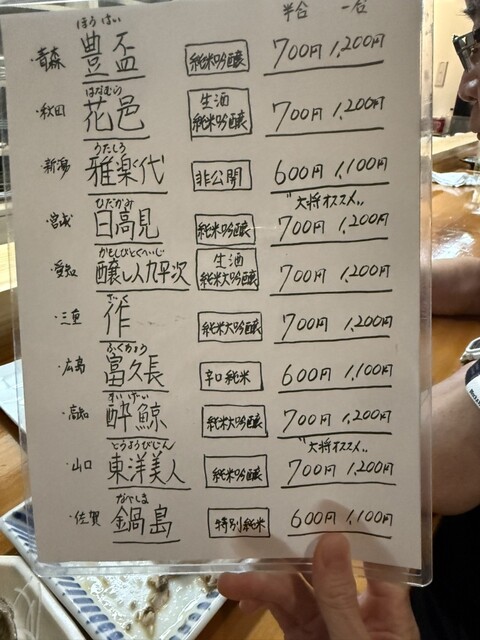 半合 一合
ほうはい
・青森 豊盃 純米吟醸 700円 1,200円
はなむら
・秋田 花邑 生酒 純米吟醸 700円 1,200円
うたしろ
・新潟 雅楽代 非公開 600円 1,100円
ひたかみ "大将オススメ"
・宮城 日高見 純米吟醸 700円 1,200円
かもしびとくへいじ
・愛知 醸し人九平次 生酒 純米大吟醸 700円 1,200円
ざく
・三重 作 純米大吟醸 700円 1,200円
ふくちょう
・広島 富久長 辛口純米 600円 1,100円
すいげい
・高知 酔鯨 純米大吟醸 700円 1,200円
とうようびじん "大将オススメ"
・山口 東洋美人 純米吟醸 700円 1,200円
なべしま
・佐賀 鍋島 特別純米 600円 1,100円